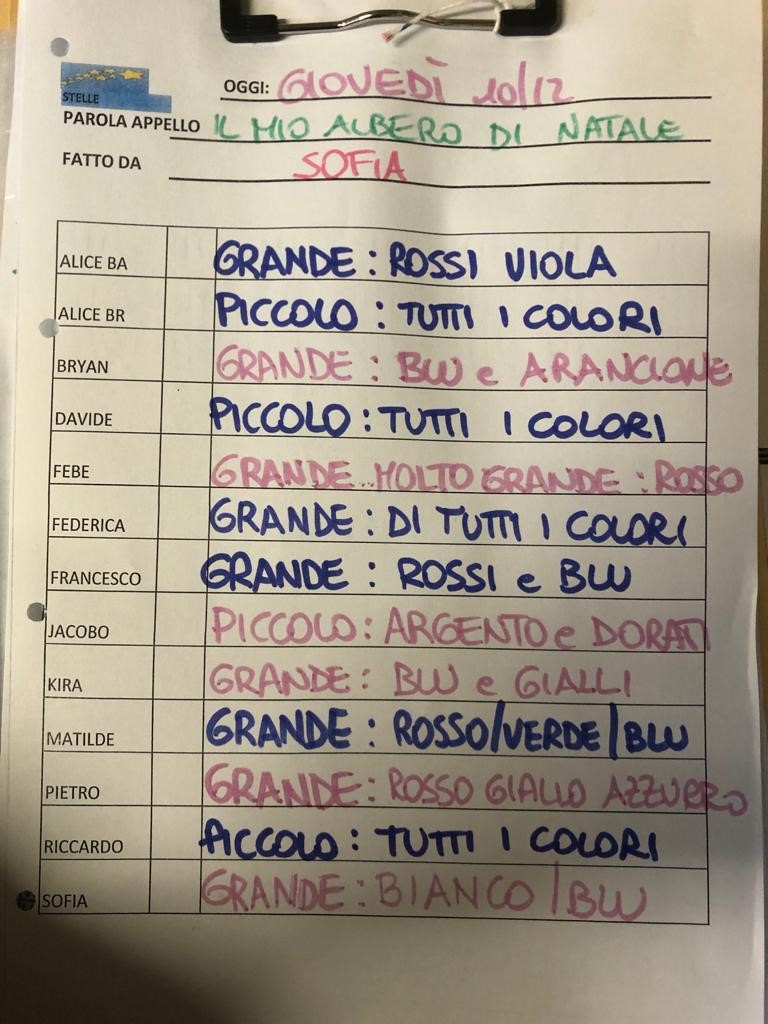 STELLE
OGGI: GIOVEDÌ 10/12
PAROLA APPELLO IL MIO ALBERO DI NATALE
FATTO DA SOFIA
ALICE BA GRANDE: ROSSI VIOLA
ALICE BR PICCOLO: TUTTI I COLORI
BRYAN GRANDE: BLU e ARANCIONE
DAVIDE PICCOLO: TUTTI I COLORI
FEBE GRANDE..MOLTO GRANDE: ROSSO
FEDERICA GRANDE: DI TUTTI I COLORI
FRANCESCO GRANDE: ROSSI e BLU
JACOBO PICCOLO: ARGENTO e DORATI
KIRA GRANDE: BLU e GIALLI
MATILDE GRANDE: ROSSO/VERDE/BLU
PIETRO GRANDE: ROSSO GIALLO AZZURRO
RICCARDO PICCOLO: TUTTI I COLORI
SOFIA GRANDE: BIANCO/BLU